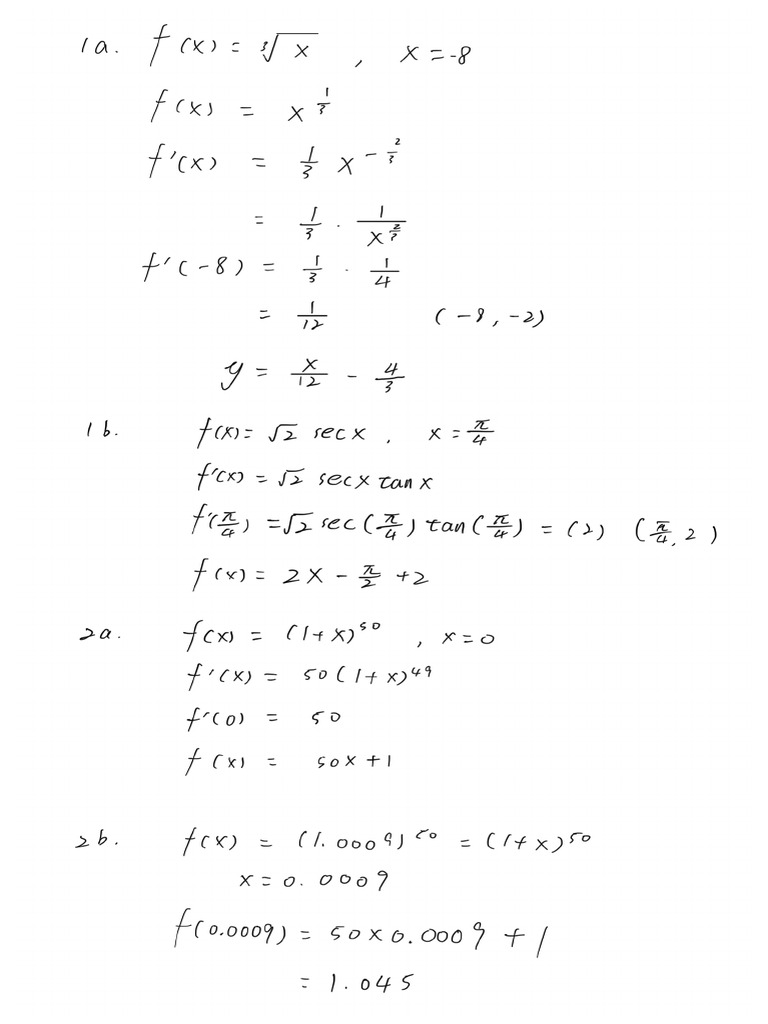 1a. f(x) = ∛x , x = -8
f(x) = x^(1/3)
f'(x) = 1/3 x^(-2/3)
= 1/3 · 1/x^(2/3)
f'(-8) = 1/3 · 1/4
= 1/12 (-8, -2)
y = x/12 - 4/3
1b. f(x) = √2 sec x , x = π/4
f'(x) = √2 sec x tan x
f'(π/4) = √2 sec(π/4) tan(π/4) = (2) (π/4, 2)
f(x) = 2x - π/2 + 2
2a. f(x) = (1+x)^50 , x = 0
f'(x) = 50(1+x)^49
f'(0) = 50
f(x) = 50x + 1
2b. f(x) = (1.0009)^50 = (1+x)^50
x = 0.0009
f(0.0009) = 50 × 0.0009 + 1
= 1.045